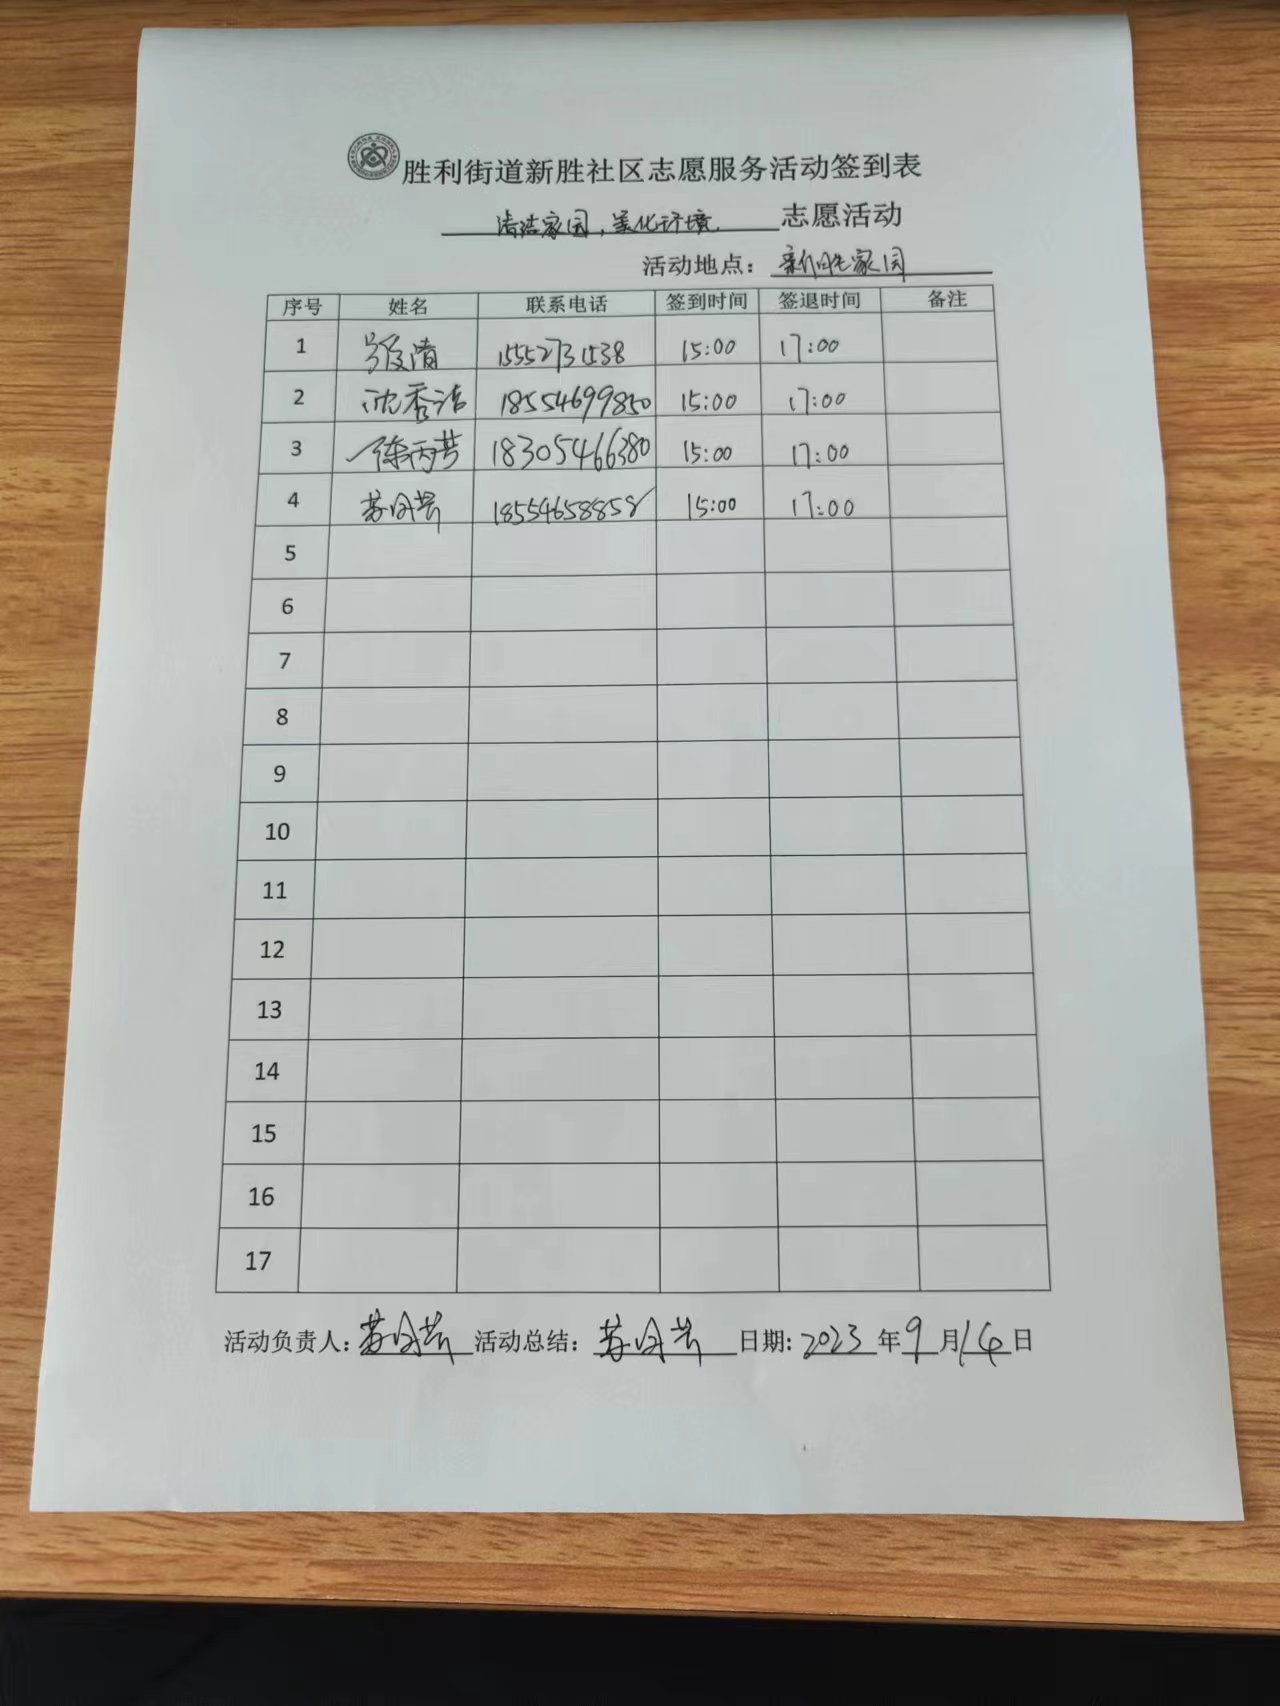 胜利街道新胜社区志愿服务活动签到表
清洁家园,美化环境 志愿活动
活动地点: 新胜家园
序号 姓名 联系电话 签到时间 签退时间 备注
1 15552731538 15:00 17:00
2 沈香洁 18554699850 15:00 17:00
3 徐丙芳 18305466380 15:00 17:00
4 苏月芹 18554658858 15:00 17:00
5
6
7
8
9
10
11
12
13
14
15
16
17
活动负责人: 苏月芹 活动总结: 苏月芹 日期: 2023 年 9 月 14 日